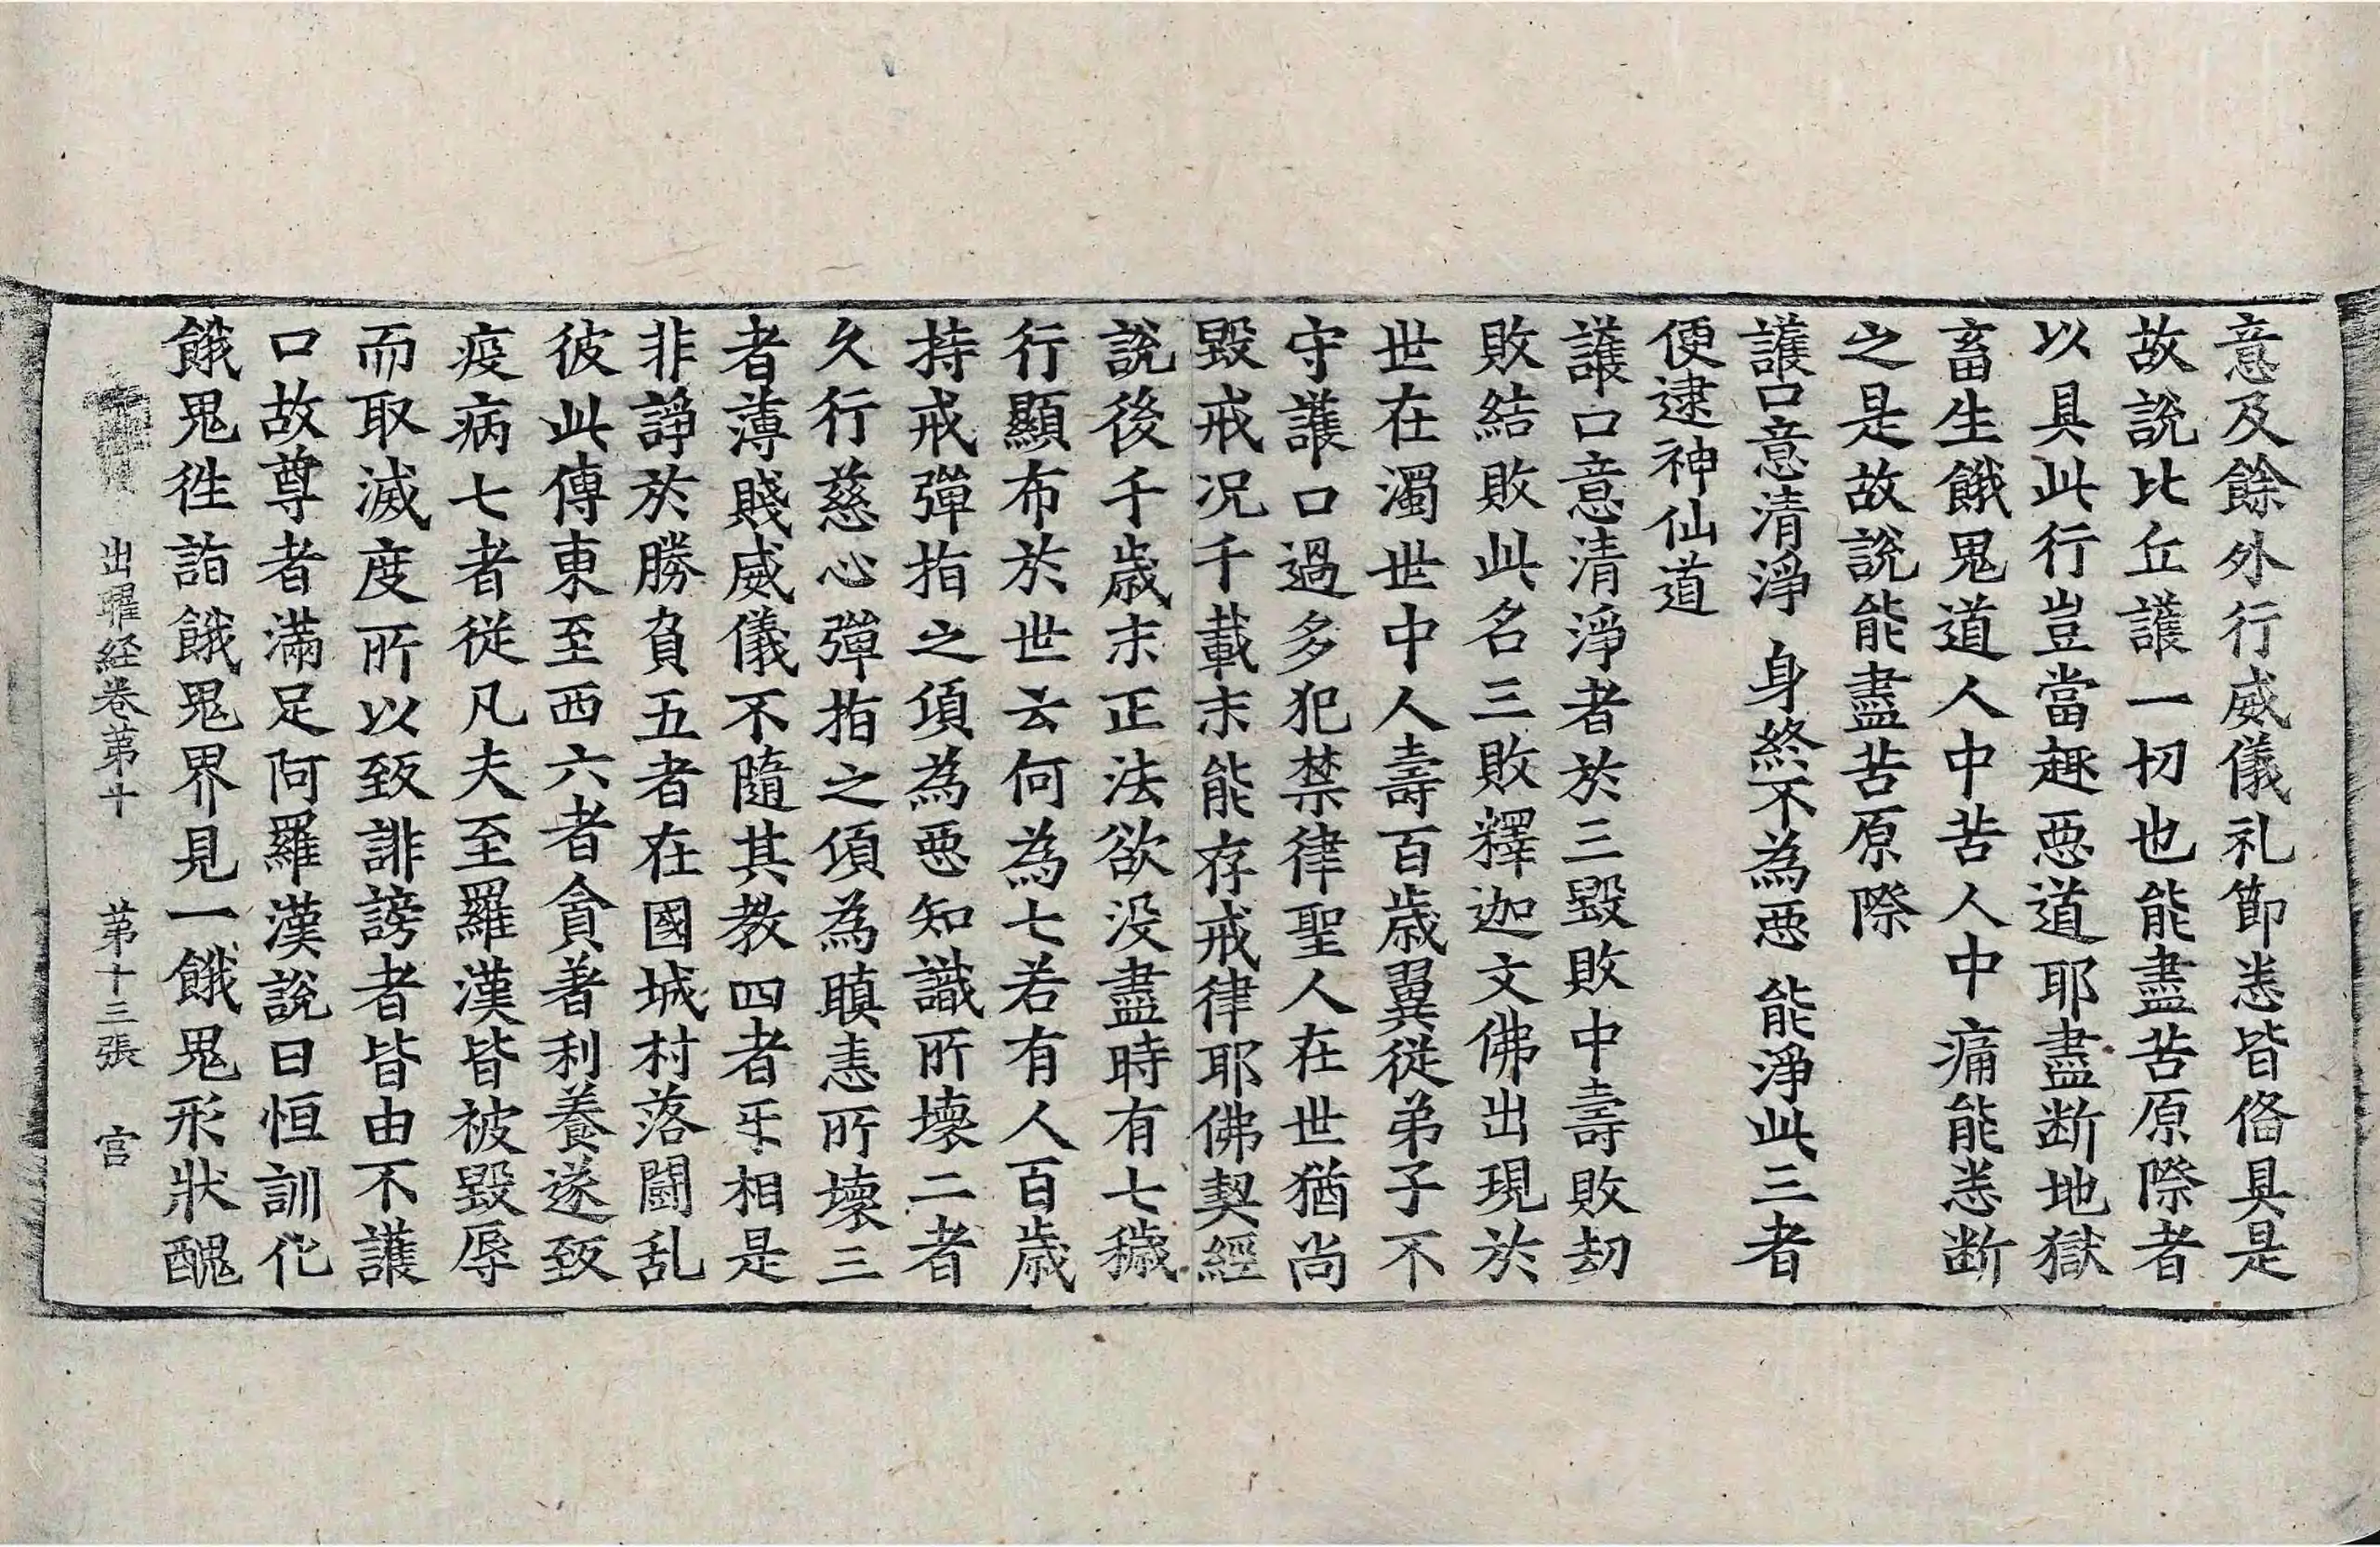 意及餘外行威儀礼節悉皆俻具是
故說比丘護一切也能盡苦原際者
以具此行豈當趣惡道耶盡断地獄
畜生餓鬼道人中苦人中痛能悉断
之是故說能盡苦原際
護口意清淨 身終不為惡 能淨此三者
便逮神仙道
護口意清淨者於三毀敗中壽敗劫
敗結敗此名三敗釋迦文佛出現於
世在濁世世中人壽百歲翼從弟子不
守護口過多犯禁律聖人在世猶尚
毀戒况千載末能存戒律耶佛契經
說後千歲末正法欲没盡時有七穢
行顯布於世云何為七若有人百歲
持戒彈指之頃為惡知識所壞二者
久行慈心彈指之頃為瞋恚所壞三
者薄賤威儀不隨其教四者乐相是
非諍於勝負五者在國城村落鬪乱
彼此傳東至西六者貪著利養遂致
疫病七者從凡夫至羅漢皆被毀辱
而取滅度所以致誹謗者皆由不護
口故尊者滿足阿羅漢說曰恒訓化
餓鬼徃詣餓鬼界見一餓鬼形狀醜
出曜経卷苐十 苐十三張 宫